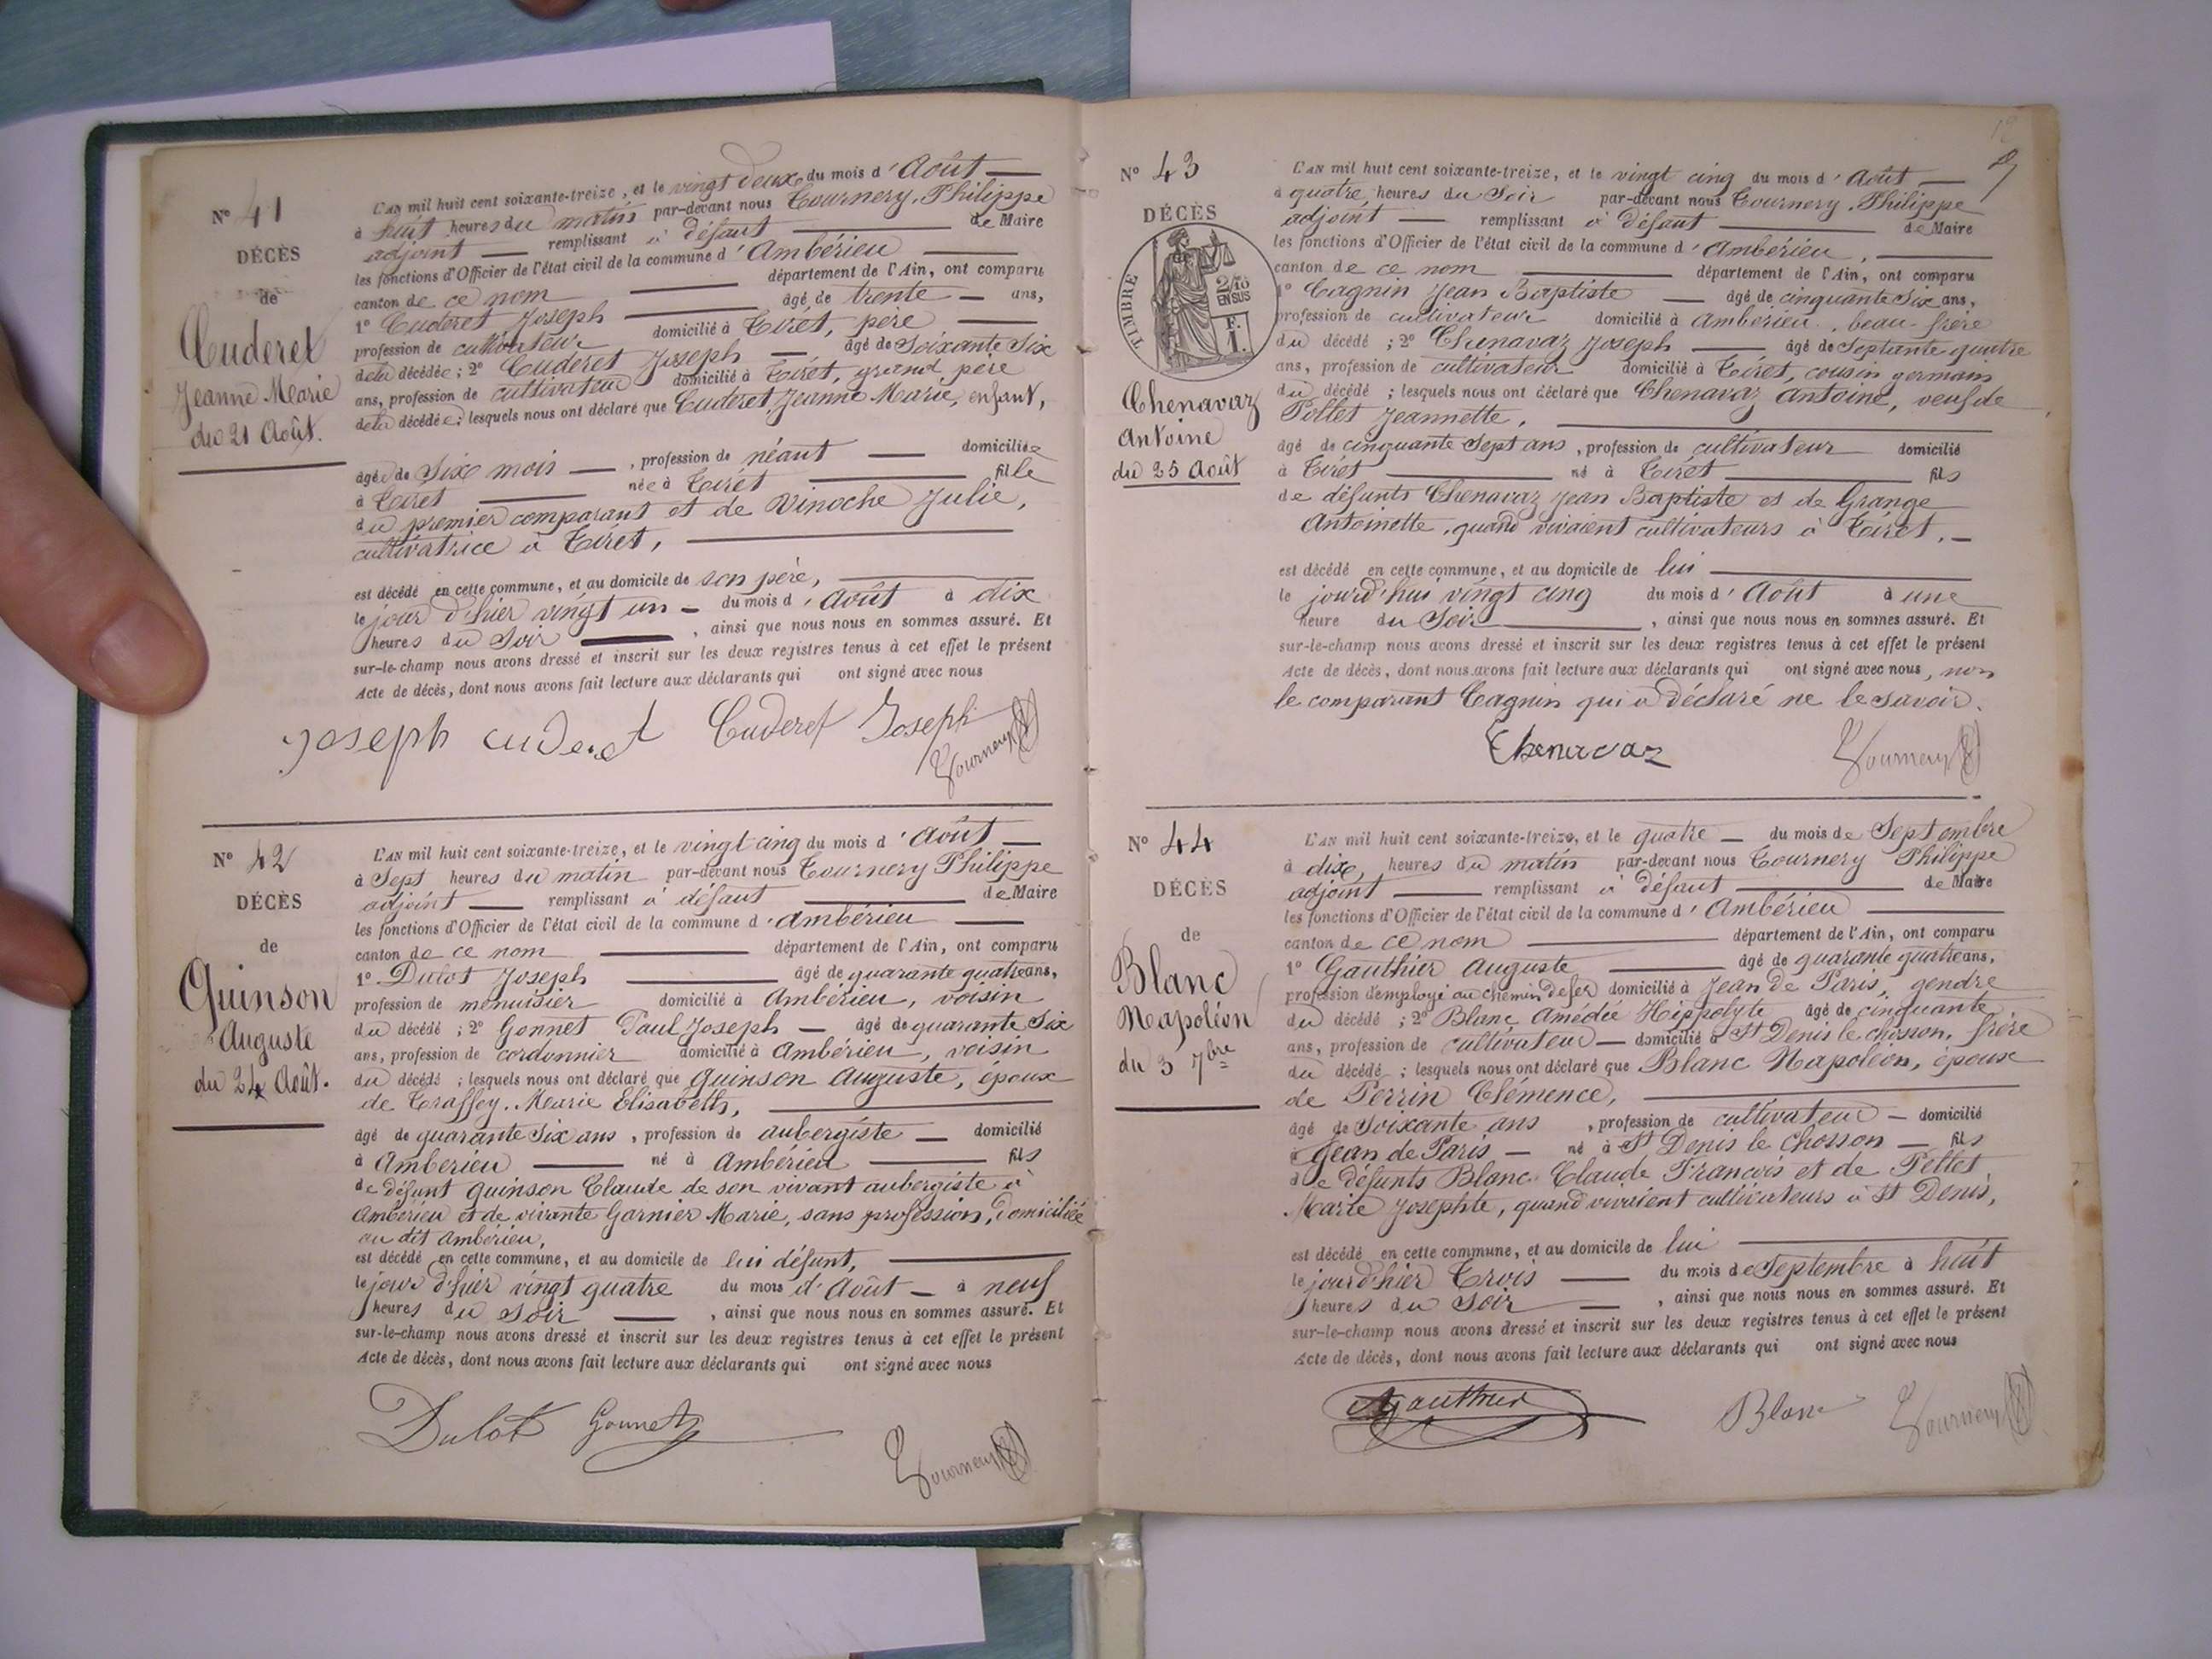 N° 41
DÉCÈS
de
Cuderet
Jeanne Marie
du 21 Août.
L'AN mil huit cent soixante-treize, et le vingt deux du mois d'Août
à huit heures du matin par-devant nous Tournery Philippe
adjoint remplissant à défaut de Maire
les fonctions d'Officier de l'état civil de la commune d'Ambérieu
canton de ce nom département de l'Ain, ont comparu
1° Cuderet Joseph âgé de trente ans,
profession de cultivateur domicilié à Tiret, père
de la décédée ; 2° Cuderet Joseph âgé de Soixante Six
ans, profession de cultivateur domicilié à Tiret, grand père
de la décédée ; lesquels nous ont déclaré que Cuderet Jeanne Marie, enfant,
âgée de Six mois, profession de néant domiciliée
à Tiret née à Tiret fille
du premier comparant et de Vinoche Julie,
cultivatrice à Tiret,
est décédé en cette commune, et au domicile de son père,
le jour d'hier vingt un du mois d'Août à dix
heures du Soir, ainsi que nous nous en sommes assuré. Et
sur-le-champ nous avons dressé et inscrit sur les deux registres tenus à cet effet le présent
Acte de décès, dont nous avons fait lecture aux déclarants qui ont signé avec nous
Joseph cuderet Cuderet Joseph
Tournery
N° 42
DÉCÈS
de
Quinson
Auguste
du 24 Août.
L'AN mil huit cent soixante-treize, et le vingt cinq du mois d'Août
à Sept heures du matin par-devant nous Tournery Philippe
adjoint remplissant à défaut de Maire
les fonctions d'Officier de l'état civil de la commune d'Ambérieu
canton de ce nom département de l'Ain, ont comparu
1° Dulot Joseph âgé de quarante quatre ans,
profession de menuisier domicilié à Ambérieu, voisin
du décédé ; 2° Gonnet Paul Joseph âgé de quarante Six
ans, profession de cordonnier domicilié à Ambérieu, voisin
du décédé ; lesquels nous ont déclaré que Quinson Auguste, époux
de Traffey Marie Elisabeth,
âgé de quarante Six ans, profession de aubergiste domicilié
à Amberieu né à Ambérieu fils
de défunt Quinson Claude de son vivant aubergiste à
Ambérieu et de vivante Garnier Marie, sans profession, domiciliée
au dit Ambérieu,
est décédé en cette commune, et au domicile de lui défunt,
le jour d'hier vingt quatre du mois d'Août à neuf
heures du Soir, ainsi que nous nous en sommes assuré. Et
sur-le-champ nous avons dressé et inscrit sur les deux registres tenus à cet effet le présent
Acte de décès, dont nous avons fait lecture aux déclarants qui ont signé avec nous
Dulot Gonnet
Tournery
N° 43
DÉCÈS
TIMBRE
2/10
EN SUS
F.
1.
Chenavaz
Antoine
du 25 Août
L'AN mil huit cent soixante-treize, et le vingt cinq du mois d'Août
à quatre heures du Soir par-devant nous Tournery Philippe
adjoint remplissant à défaut de Maire
les fonctions d'Officier de l'état civil de la commune d'Ambérieu,
canton de ce nom département de l'Ain, ont comparu
1° Cagnin Jean Baptiste âgé de cinquante Six ans,
profession de cultivateur domicilié à Ambérieu, beau-frère
du décédé ; 2° Chenavaz Joseph âgé de Septante quatre
ans, profession de cultivateur domicilié à Tiret, cousin germain
du décédé ; lesquels nous ont déclaré que Chenavaz Antoine, veuf de
Pellet Jeannette,
âgé de cinquante Sept ans, profession de cultivateur domicilié
à Tiret né à Tiret fils
de défunts Chenavaz Jean Baptiste et de Grange
Antoinette, quand vivaient cultivateurs à Tiret.
est décédé en cette commune, et au domicile de lui
le jourd'hui vingt cinq du mois d'Août à une
heure du Soir, ainsi que nous nous en sommes assuré. Et
sur-le-champ nous avons dressé et inscrit sur les deux registres tenus à cet effet le présent
Acte de décès, dont nous avons fait lecture aux déclarants qui ont signé avec nous, non
le comparant Cagnin qui a déclaré ne le savoir.
Chenavaz Tournery
N° 44
DÉCÈS
de
Blanc
Napoléon
du 3 7bre
L'AN mil huit cent soixante-treize, et le quatre du mois de Septembre
à dix heures du matin par-devant nous Tournery Philippe
adjoint remplissant à défaut de Maire
les fonctions d'Officier de l'état civil de la commune d'Ambérieu
canton de ce nom département de l'Ain, ont comparu
1° Gauthier Auguste âgé de quarante quatre ans,
profession d'employé au chemin de fer domicilié à Jean de Paris, gendre
du décédé ; 2° Blanc Amédée Hippolyte âgé de cinquante
ans, profession de cultivateur domicilié à St Denis le chosson, frère
du décédé ; lesquels nous ont déclaré que Blanc Napoléon, époux
de Perrin Clémence,
âgé de Soixante ans, profession de cultivateur domicilié
à Jean de Paris né à St Denis le Chosson fils
de défunts Blanc Claude François et de Pellet
Marie Josephte, quand vivaient cultivateurs à St Denis,
est décédé en cette commune, et au domicile de lui
le jour d'hier Trois du mois de Septembre à huit
heures du Soir, ainsi que nous nous en sommes assuré. Et
sur-le-champ nous avons dressé et inscrit sur les deux registres tenus à cet effet le présent
Acte de décès, dont nous avons fait lecture aux déclarants qui ont signé avec nous
Agauthier Blanc Tournery